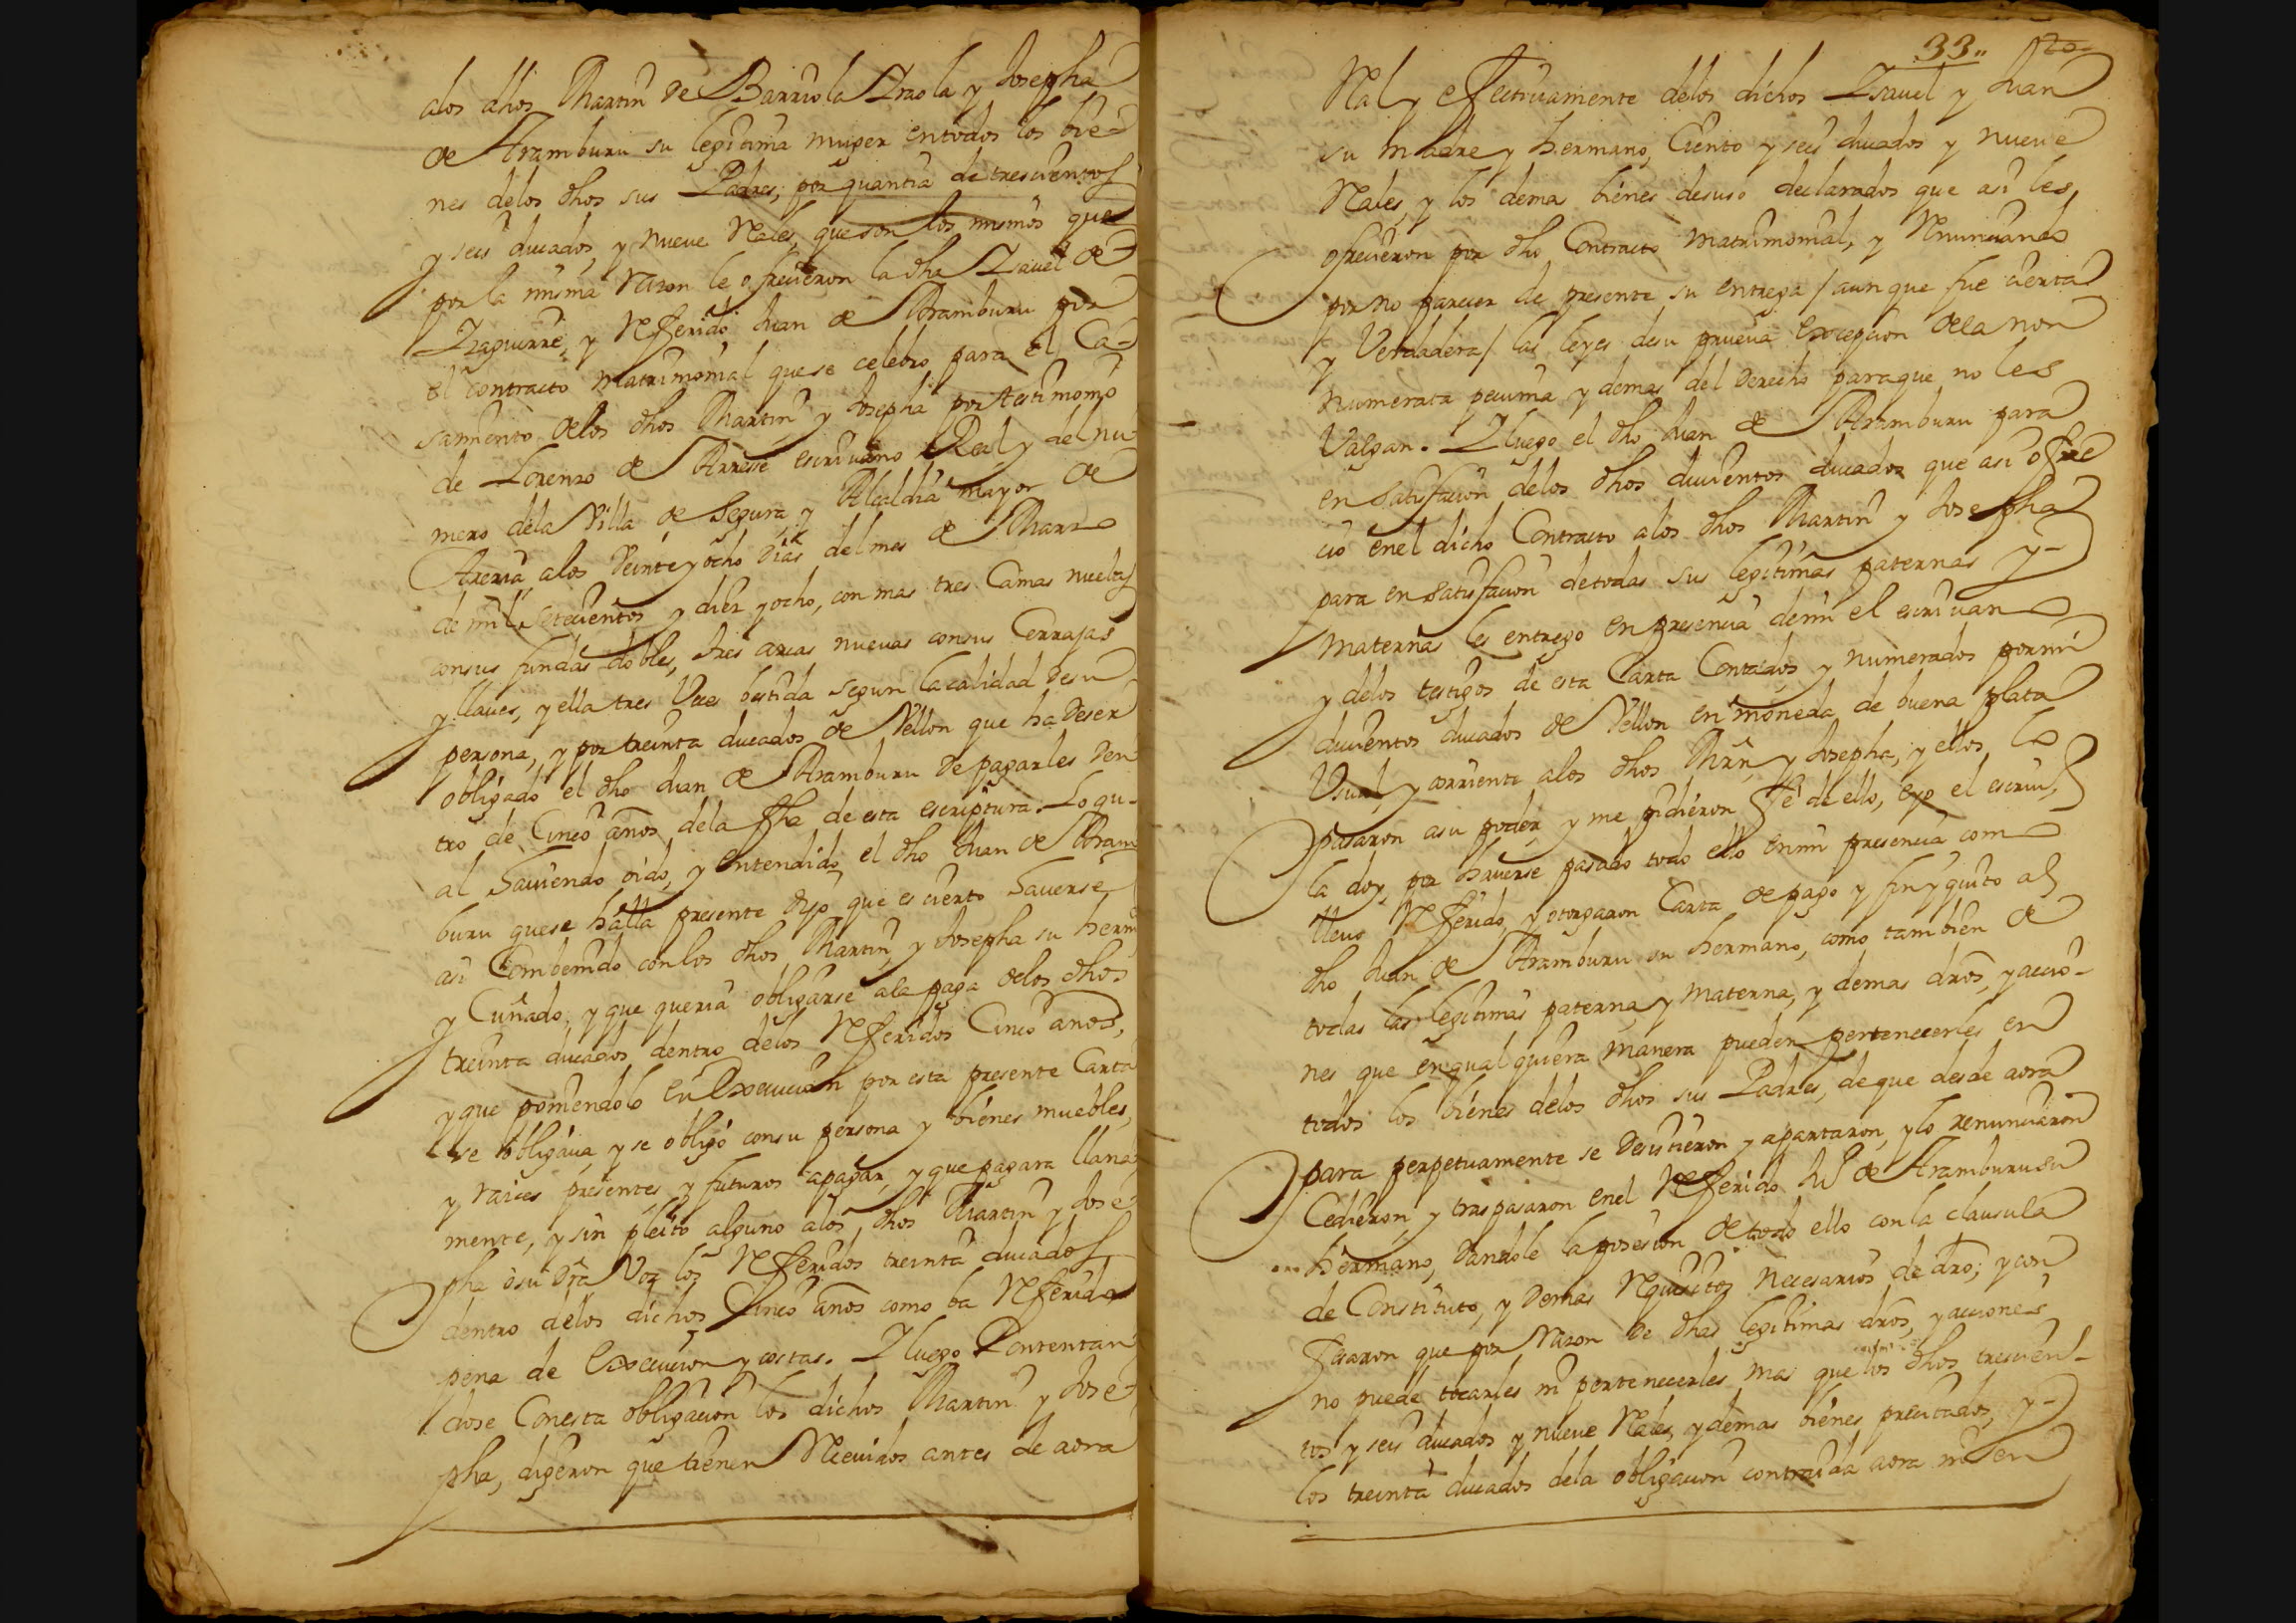 alos dhos Martin de Barriola Yraola y Josepha
de Aramburu su legitima muger entodos los bie-
nes delos dhos sus Padres, por quantia de trescientos
y seis ducados, y nueve Rales, que son los mismos que
por la misma razon le ofrecieron la dha Isavel de
Izaguirre, y Referido Juan de Aramburu por
el contracto matrimonial que se celebro para el Ca-
samiento delos dhos Martin y Josepha por testimonio
de Lorenzo de Arrese escrivano Real y del nu-
mero dela Villa de Segura y Alcaldia mayor de
Areria alos Veinte y ocho Dias del mes de Marzo
de mil setecientos y diez y ocho, con mas tres Camas nuebas
consus fundas dobles, tres arcas nuevas consus Cerrajas
y llaves, y ella tres Veces bestida segun la calidad desu
persona, y por treinta ducados de Vellon que ha Deser
obligado el dho Juan de Aramburu De pagarles Den
tro de Cinco años dela fha de esta escriptura. Lo qu-
al haviendo oido, y entendido el dho Juan de Aram
buru que se halla presente Dijo que es cierto haverse
asi Combenido con los dhos Martin y Josepha su herma
y Cuñado, y que queria obligarse ala paga delos dhos
treinta ducados dentro delos Referidos Cinco años,
y que poniendolo en Execucion por esta presente Carta
se obligava, y se obligó consu persona y bienes muebles,
y raices presentes, y futuros apagar, y que pagara llana
mente, y sin pleito alguno alos dhos Martin y Jose
pha ò su Dra Voz los Referidos treinta ducados
dentro delos dichos Cinco años como ba Referido
pena de Execucion y costas. Y luego Contentan
dose Conesta obligacion los dichos Martin y Jose-
pha, digeron que tienen Recividos antes de aora
33..
Ral y efectivamente delos dichos Isavel y Juan
su Madre y hermano, Ciento y seis ducados y nueve
Rales, y los demas bienes desuso declarados que asi les
ofrecieron por dho Contracto Matrimonial, y Renunciando
por no parecer de presente su entrega / aunque fue cierta
y Verdadera / las leyes desu prueva Excepcion dela non
numerata pecunia y demas del Derecho paraque no les
Valgan. Y luego el dho Juan de Aramburu para
en satisfacion delos dhos ducientos ducados que asi ofre
cio enel dicho Contracto alos dhos Martin y Josepha
para en satisfacion detodas sus legitimas paternas y-
maternas les entrego en presencia demi el escrivano
y delos testigos de esta Carta Contados y numerados pormi
ducientos ducados de Vellon en moneda de buena plata
Usual y corriente alos dhos Mrn y Josepha, y ellos lo
pasaron asu poder, y me pidieron Fe de ello, e yo el escriv.
la doy, por haverse pasado todo ello enmi presencia como
lleva Referido, y otorgaron Carta de pago y finyquito al
dho Juan de Aramburu su hermano, como tambien de
todas las legitimas paterna y Materna, y demas dros, y accio-
nes que enqualquiera manera pueden pertenecerles en
todos los bienes delos dhos sus Padres, de que desde aora
para perpetuamente se Desistieron y apartaron, y lo renunciaron
Cedieron, y traspasaron enel Referido Jun de Aramburu su
hermano, Dandole la posesion de todo ello con la clausula
de Constituto, y Demas Requisitos necesarios de dro; y con
fesaron que por Razon de dhas legitimas dros, y acciones
no puede tocarles ni pertenecerles mas que los dhos trescien-
tos y seis ducados y nueve Rales, y demas bienes precitados, y-
los treinta ducados dela obligacion contraida aora ni en